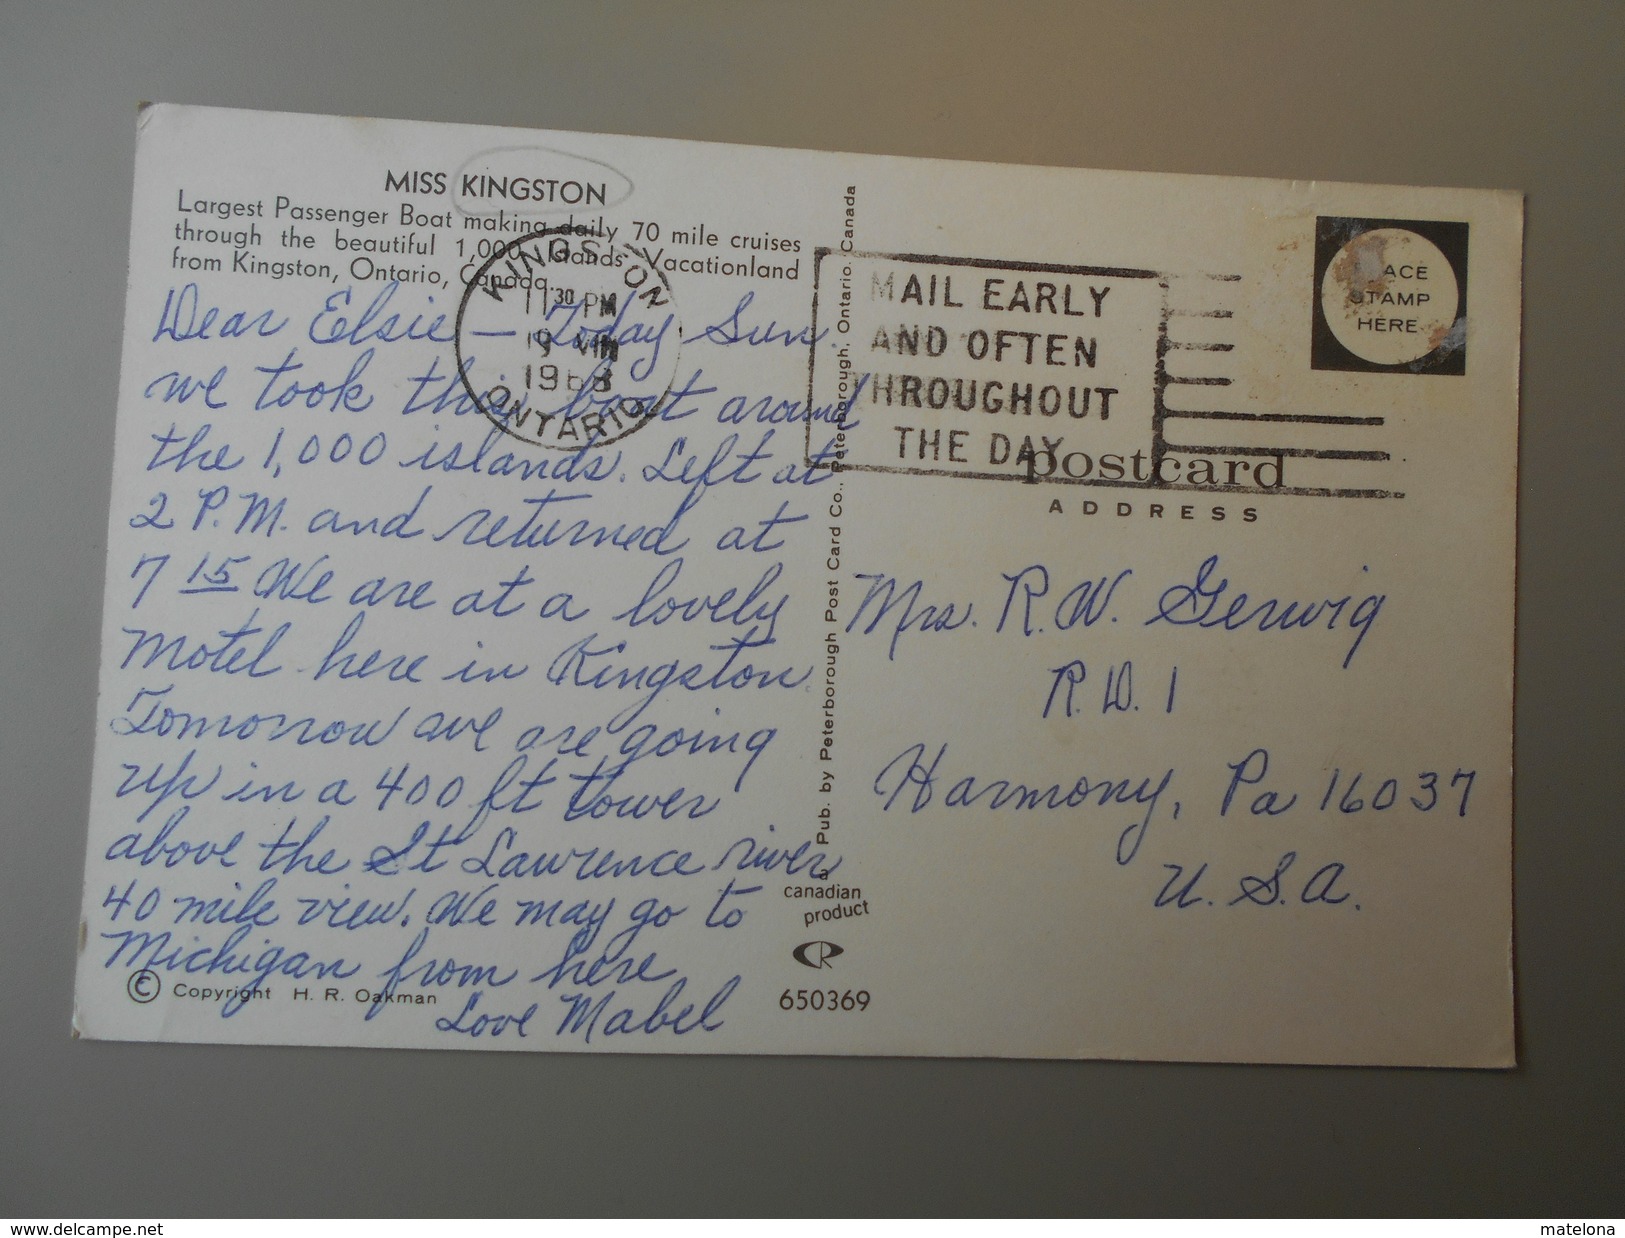 MISS KINGSTON
Largest Passenger Boat making daily 70 mile cruises
through the beautiful 1,000 Islands Vacationland
from Kingston, Ontario, Canada.
Dear Elsie — Today Sun.
we took this boat around
the 1,000 islands. Left at
2 P.M. and returned at
7 15 We are at a lovely
Motel here in Kingston
Tomorrow we are going
up in a 400 ft tower
above the St Lawrence river
40 mile view. We may go to
Michigan from here
Love Mabel
© Copyright H. R. Oakman
KINGSTON
11 30 PM
19 VIII
1968
ONTARIO
Pub. by Peterborough Post Card Co., Peterborough, Ontario. Canada
a
canadian
product
CR
650369
MAIL EARLY
AND OFTEN
THROUGHOUT
THE DAY
PLACE
STAMP
HERE
postcard
ADDRESS
Mrs. R. W. Gerwig
R. D. 1
Harmony, Pa 16037
U. S. A.
www.delcampe.net
matelona